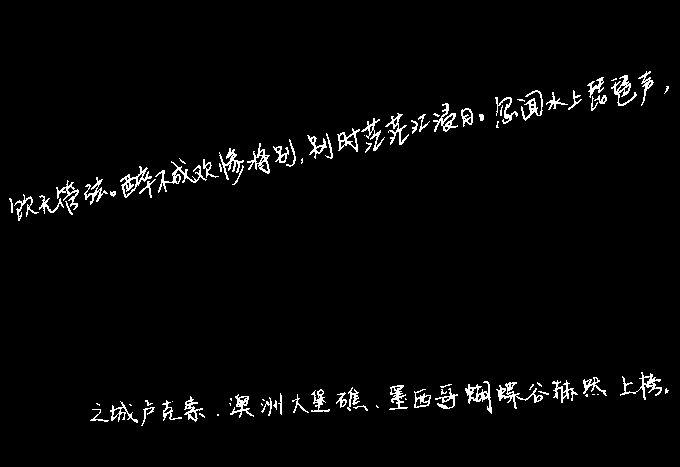 饮无管弦。醉不成欢惨将别,别时茫茫江浸月。忽闻水上琵琶声,
之城卢克索、澳洲大堡礁、墨西哥蝴蝶谷赫然上榜。